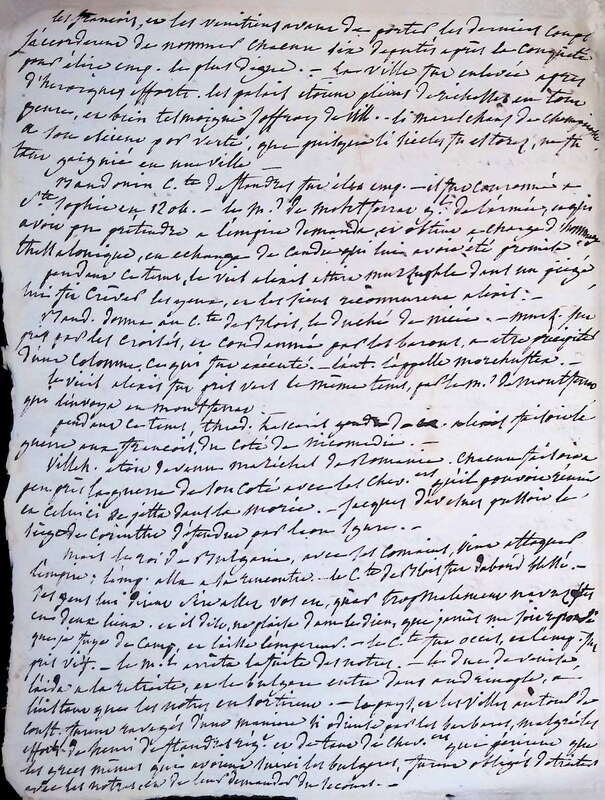 les francois, et les venitiens avant de porter les derniers coups
s'accorderent de nommer chacun six deputés après la conquète
pour élire emp. le plus digne. — La ville fut enlevée après
d'heroiques efforts. les palais etoient pleins de richesses en tout
genre, et bien tesmoigne Joffroy de Vill. le mareschaus de champaigne
a son escient por verté, que puisque li siecles fu estorez, ne fu
tant gaignié en une ville —
Baudouin C.te de flandres fut élu emp. — il fut couronné a
S.te Sophie en 1204. — le m.is de montferrat de l'armée, et qui
avoit pu pretendre a l'empire demanda, et obtint a charge d'hommage
thessalonique, en echange de candie qui lui avoit été promise. —
pendant ce tems, le vieil alexis attira murzuphle dans un piege
lui fit crever les yeux, et les siens reconnurent alexis. —
Baud. donna au C.te de Blois, le duché de nicée. — murtz. fut
pris par les croisés, et condamné par les barons, a etre précipité
d'une colonne, ce qui fut executé. — l'aut. l'appelle morchuflex. —
le vieil alexis fut pris vers le meme tems, par le m.is de montferrat
qui l'envoya en montferrat.
pendant ce tems, théod. Lascaris gendre d'alexis faisoit la
guerre aux francois, du coté de nicomedie. —
Villeh. etoit devenu maréchal de Romanie. chacun faisoit a
peu près la guerre de son coté avec les chev.ers qu'il pouvoit réunir
et celui ci se jetta dans la morée. — Jacques d'avesnes pressoit le
siege de corinthe défendue par leon Sgure. —
mais le roi de Bulgarie, avec ses comains, vint attaquer
l'empire; l'emp. alla a la rencontre. le C.te de Blois fut d'abord blessé. —
ses gens lui dirent Sire allez vos en, quar trop malement navrez estes
en deux leux. et il dit, ne plaise dam le dieu, que jamès me soit reproché
que je fuye de camp, et laisse l'empereor. — le C.te fut occis, et l'emp. fut
pris vif. — le m.al arreta la fuite des notres. — le duc de venise,
l'aida a la retraite, et le bulgare entra dans andrenople, a
l'instant que les notres en sortirent. — le pays, et les villes autour de
const. furent ravagés d'une maniere si odieuse par les barbares, malgré les
efforts de henri de flandres rég. et de tant de chev.ers qui périrent que
les grecs mêmes qui avoient suivi les bulgares, furent obligés de traiter
avec les notres, et de leur demander du secours. —